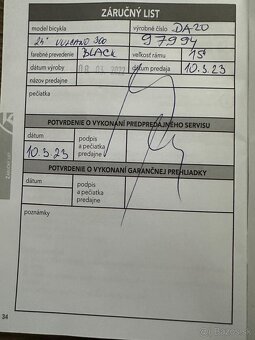 ZÁRUČNÝ LIST
model bicykla výrobné číslo DA20
24" VULCANO 300 97994
farebné prevedenie BLACK veľkosť rámu 15"
dátum výroby 08 04 2022 dátum predaja 10.3.23
názov predajne
pečiatka
POTVRDENIE O VYKONANÍ PREDPREDAJNÉHO SERVISU
dátum podpis
10.3.23 a pečiatka
predajne
POTVRDENIE O VYKONANÍ GARANČNEJ PREHLIADKY
dátum podpis
a pečiatka
predajne
poznámky
ZÁRUČNÝ LIST
34